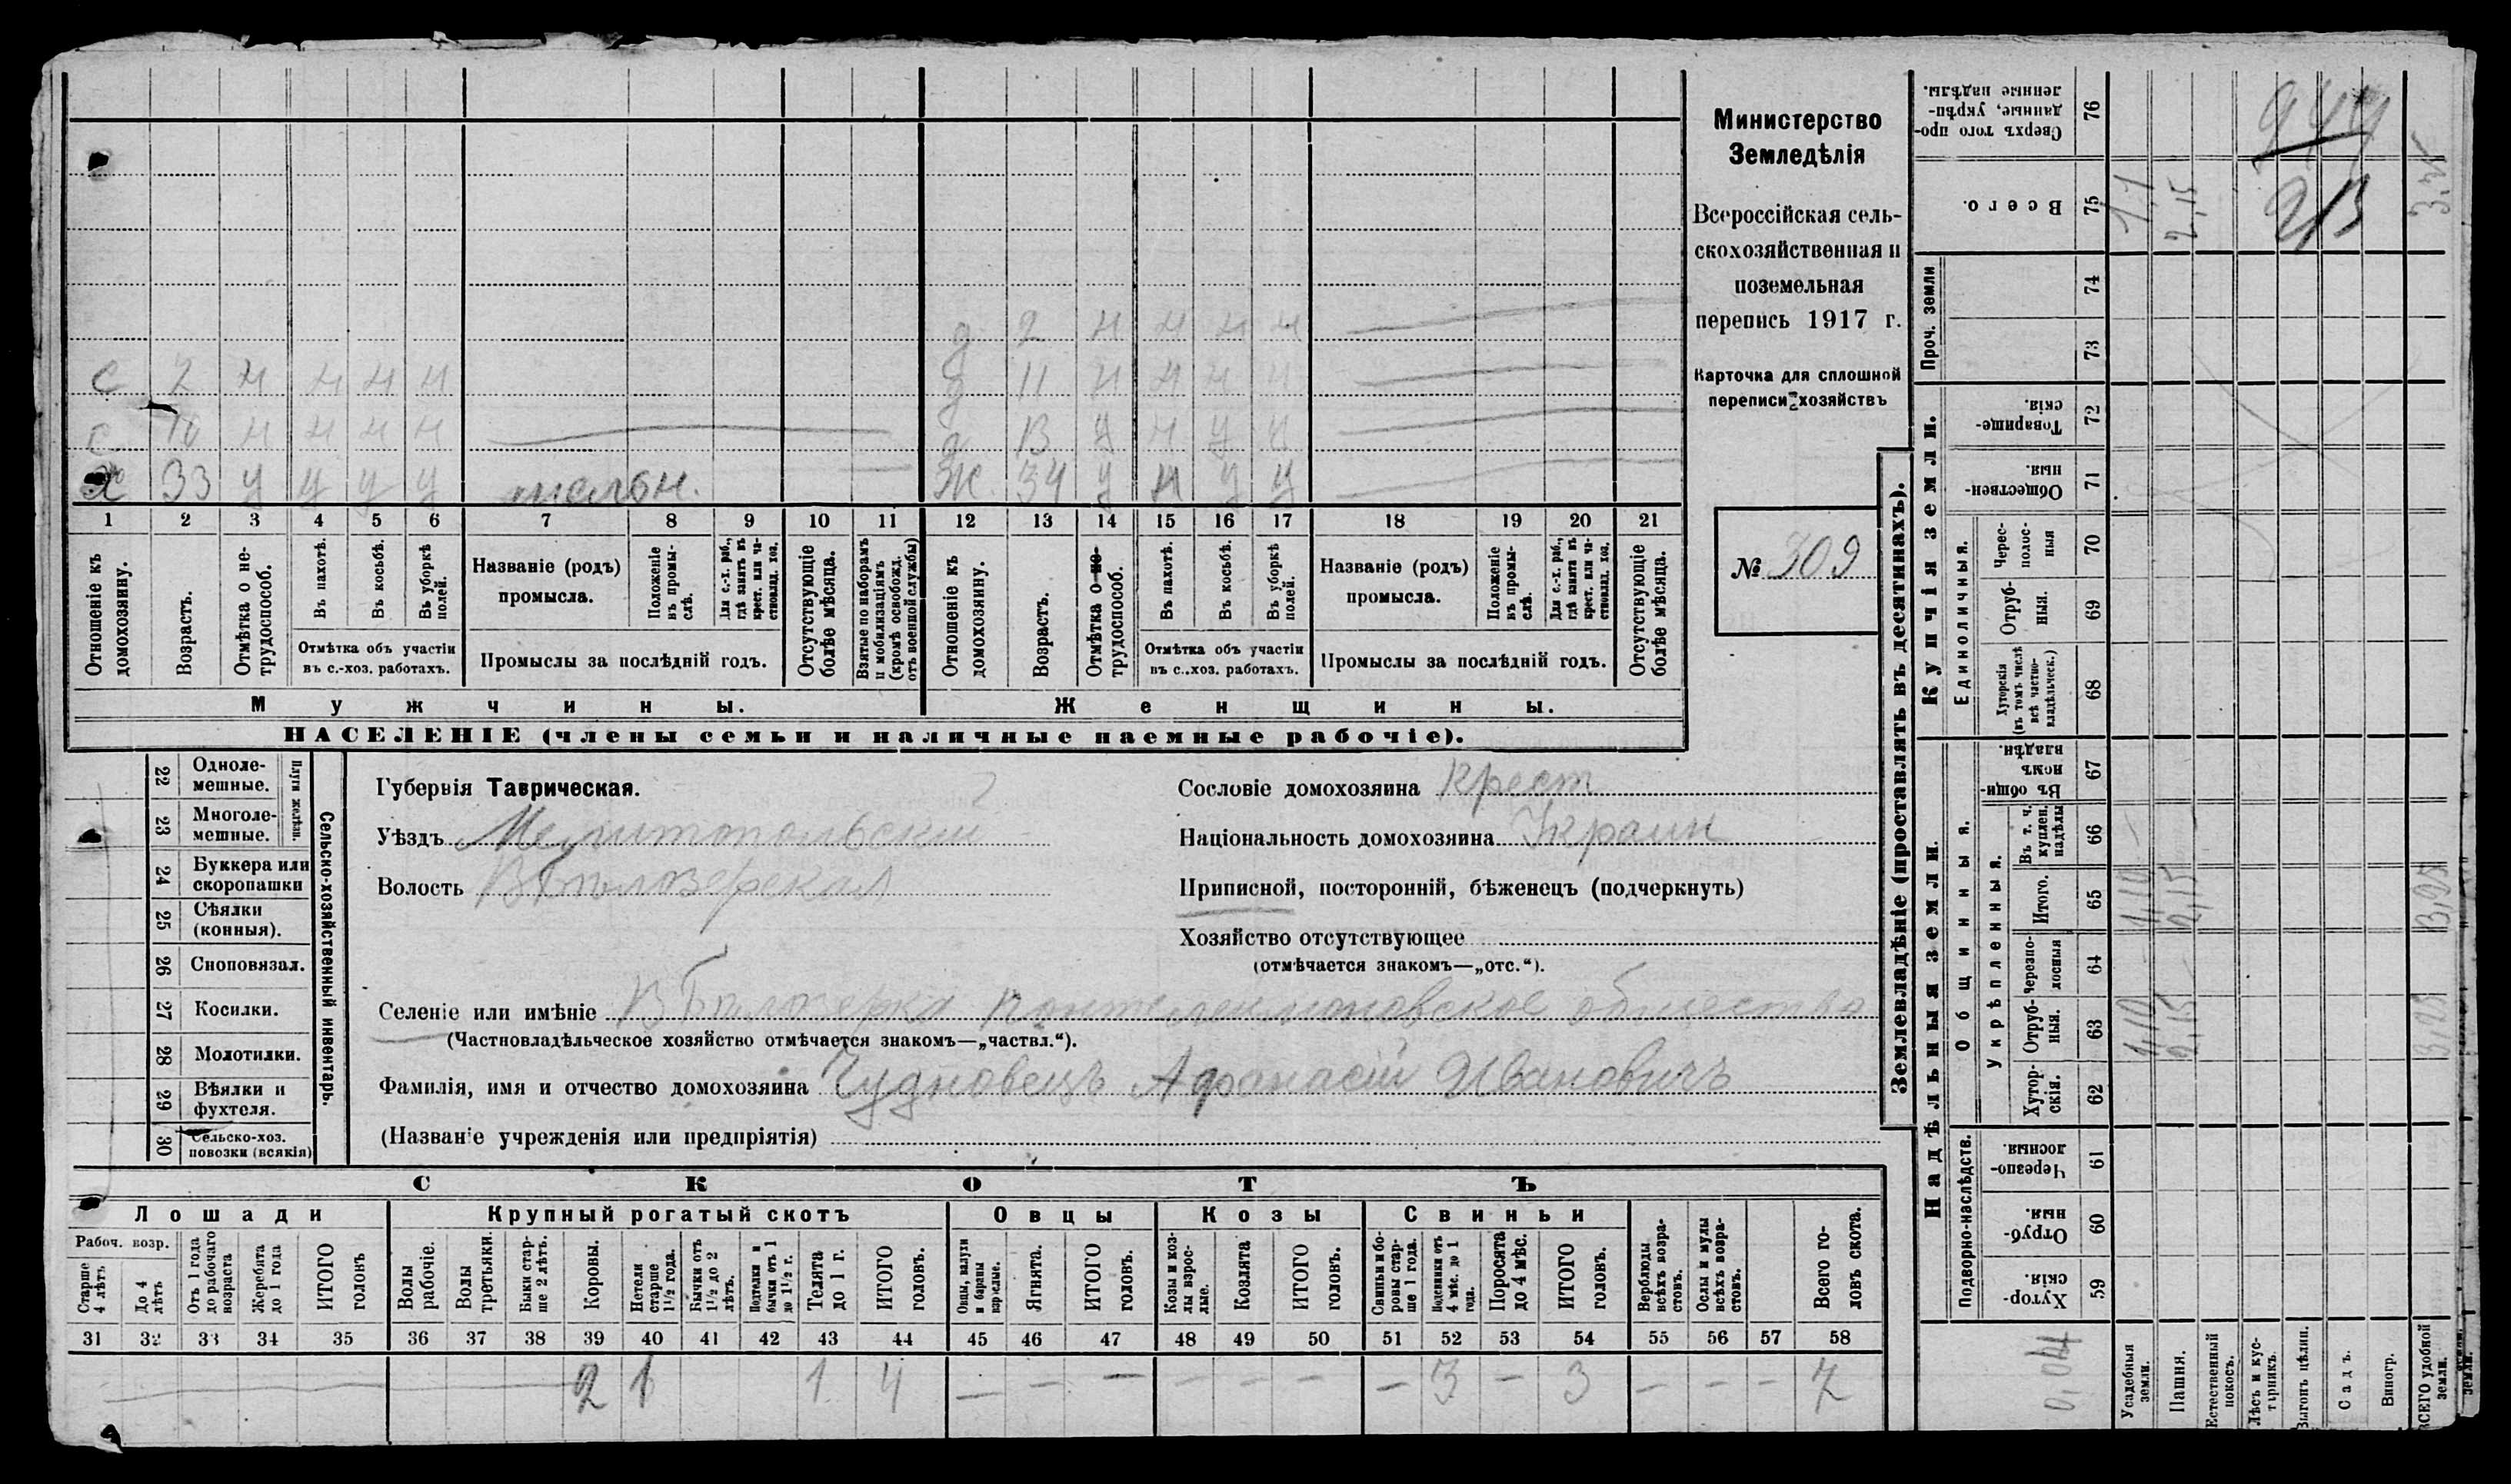 с 2 н н н н
с 10 н н н н
х 33 у у у у мельн.
д 2 н н н н
д 11 н н н н
д 13 у н у у
Ж 34 у н у у
1 2 3 4 5 6 7 8 9 10 11 12 13 14 15 16 17 18 19 20 21
Отношеніе къ домохозяину.
Возрастъ.
Отмѣтка о не-
трудоспособ.
Въ пахотѣ.
Въ косьбѣ.
Въ уборкѣ полей.
Отмѣтка объ участіи
въ с.-хоз. работахъ.
Названіе (родъ)
промысла.
Положеніе
въ промы-
слѣ.
Для с.-х. раб.,
гдѣ занятъ въ
крест. или ча-
стновлад. хоз.
Промыслы за послѣдній годъ.
Отсутствующіе
болѣе мѣсяца.
Взятые по наборамъ
и мобилизаціямъ
(кромѣ освобожд.
отъ военной службы)
Отношеніе къ
домохозяину.
Возрастъ.
Отмѣтка о не-
трудоспособ.
Въ пахотѣ.
Въ косьбѣ.
Въ уборкѣ
полей.
Отмѣтка объ участіи
въ с..хоз. работахъ.
Названіе (родъ)
промысла.
Положеніе
въ промы-
слѣ.
Для с.-х. раб.,
гдѣ занята въ
крест. или ча-
стновлад. хоз.
Промыслы за послѣдній годъ.
Отсутствующіе
болѣе мѣсяца.
Мужчины.
Женщины.
НАСЕЛЕНІЕ (члены семьи и наличные наемные рабочіе).
Министерство
Земледѣлія
Всероссійская сель-
скохозяйственная и
поземельная
перепись 1917 г.
Карточка для сплошной
переписи хозяйствъ
№ 309
22 Одноле-
мешные.
23 Многоле-
мешные.
Плуги желѣзн.
24 Буккера или
скоропашки
25 Сѣялки
(конныя).
26 Сноповязал.
27 Косилки.
28 Молотилки.
29 Вѣялки и
фухтеля.
30 Сельско-хоз.
повозки (всякія)
Сельско-хозяйственный инвентарь.
Губернія Таврическая.
Уѣздъ Мелитопольскій
Волость ВБѣлозерская
Селеніе или имѣніе ВБѣлозерка Пантелеимоновское общество
(Частновладѣльческое хозяйство отмѣчается знакомъ—„частвл.“).
Фамилія, имя и отчество домохозяина Чудновецъ Афанасій Ивановичъ
(Названіе учрежденія или предпріятія)
Сословіе домохозяина крест
Національность домохозяина Украин
Приписной, посторонній, бѣженецъ (подчеркнуть)
Хозяйство отсутствующее
(отмѣчается знакомъ—„отс.“).
СКОТЪ
Лошади
Рабоч. возр.
Старше
4 лѣтъ
До 4
лѣтъ
Отъ 1 года
до рабочаго
возраста
Жеребята
до 1 года
ИТОГО
головъ
Крупный рогатый скотъ
Волы
рабочіе.
Волы
третьяки.
Быки стар-
ше 2 лѣтъ.
Коровы.
Нетели
старше
1½ года.
Бычки отъ
1½ до 2
лѣтъ.
Подтелки и
бычки отъ 1
до 1½ г.
Телята
до 1 г.
ИТОГО
головъ.
Овцы
Овцы, валухи
и бараны
взрослые.
Ягнята.
ИТОГО
головъ.
Козы
Козы и коз-
лы взрос-
лые.
Козлята
ИТОГО
головъ.
Свиньи
Свиньи и бо-
ровы стар-
ше 1 года.
Подсвинки отъ
4 мѣс. до 1
года.
Поросята
до 4 мѣс.
ИТОГО
головъ.
Верблюды
всѣхъ возра-
стовъ.
Ослы и мулы
всѣхъ возра-
стовъ.
Всего го-
ловъ скота.
31 32 33 34 35 36 37 38 39 40 41 42 43 44 45 46 47 48 49 50 51 52 53 54 55 56 57 58
2 1 1 4 — — — — — — — 3 — 3 — — — 7
Землевладѣніе (проставлять въ десятинахъ).
Сверхъ того про-
данные, укрѣп-
ленные надѣлы.
76
Всего.
75
1,1
2,15
213
3,25
Проч. земли
74
73
Купчія земли.
Товарище-
скія.
72
Обществен-
ныя.
71
Единоличныя.
Черес-
полос-
ныя
70
Отруб-
ныя.
69
Хуторскія
(въ томъ числѣ
всѣ частно-
владѣльческ.)
68
Надѣльныя земли.
Общинныя.
Въ общи-
номъ
владѣн.
67
Укрѣпленныя.
Въ т. ч.
куплен.
надѣлы
66
Итого.
65
1,10
2,15
3,25
Черезпо-
лосныя
64
Отруб-
ныя.
63
1,10
2,15
3,25
Хутор-
скія.
62
Подворно-наслѣдств.
Черезпо-
лосныя
61
Отруб-
ныя
60
Хутор-
скія.
59
Усадебныя
земли.
Пашня.
Естественный
покосъ.
Лѣсъ и кус-
тарникъ.
Выгонъ цѣлин.
Садъ.
Виногр.
ВСЕГО удобной
земли.